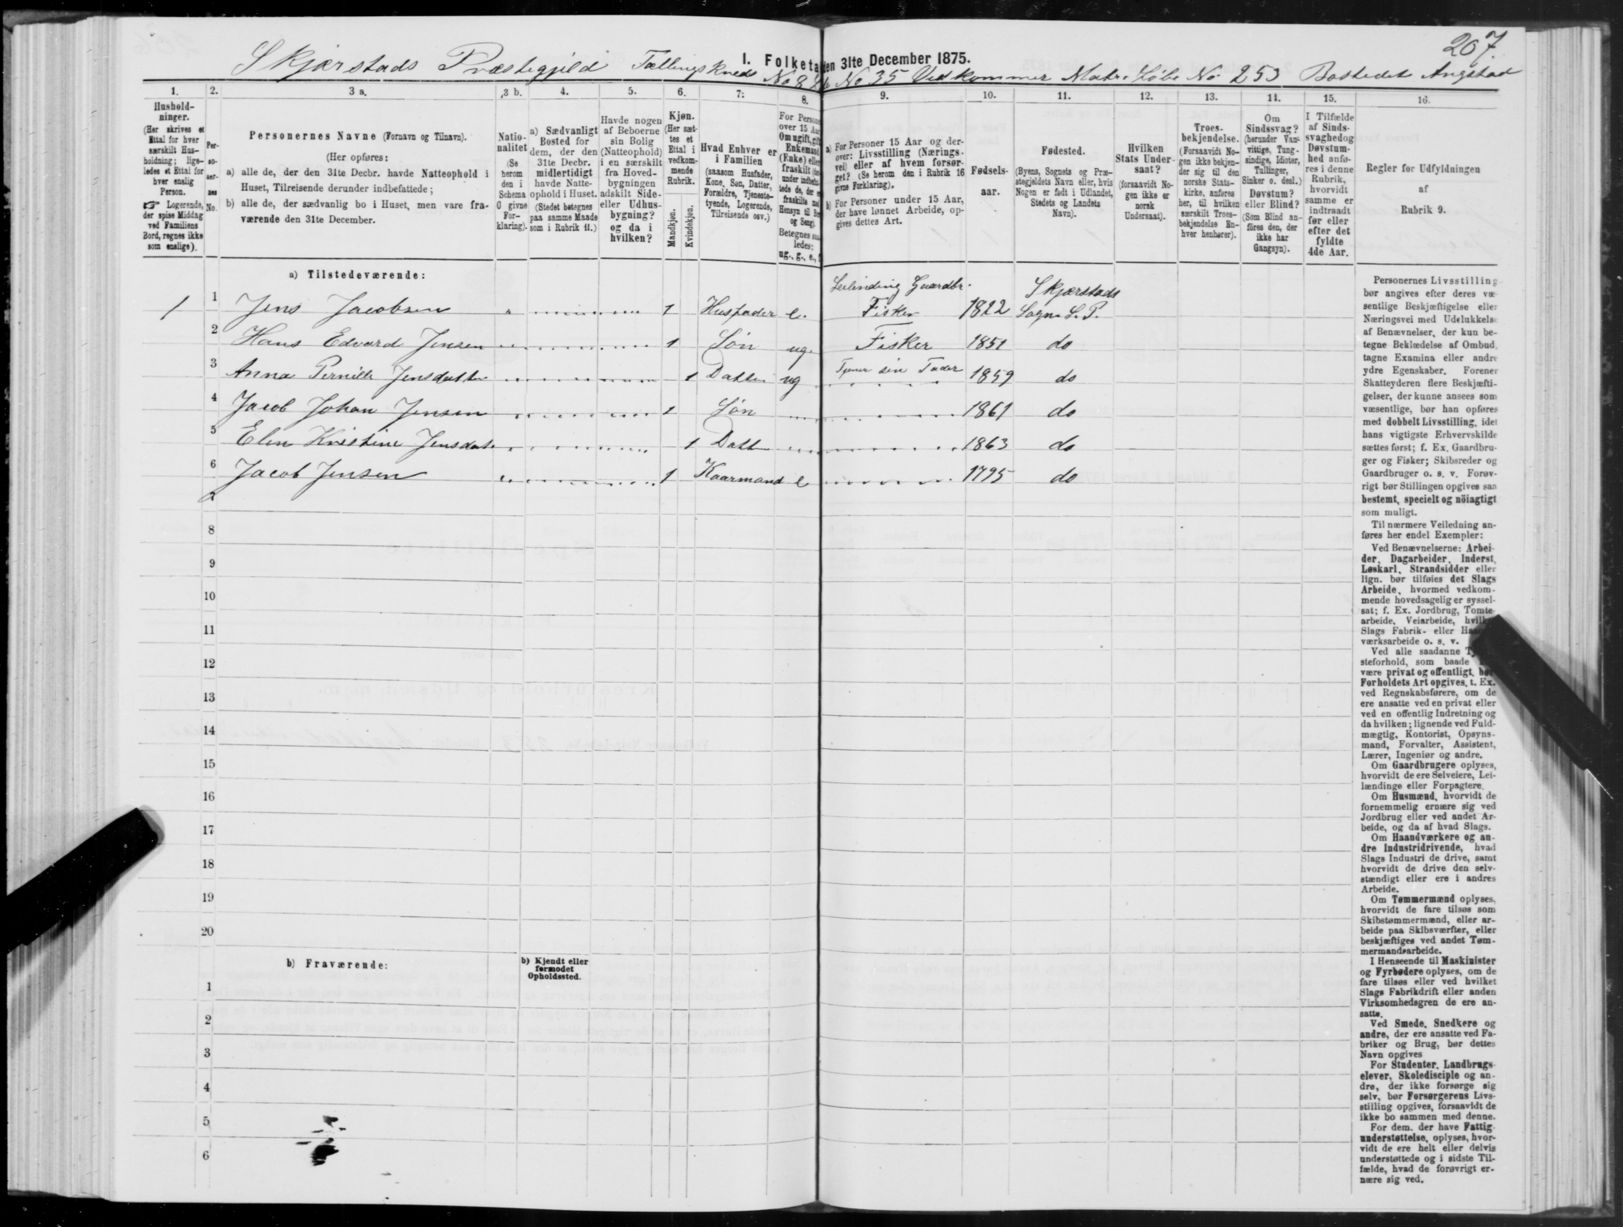 207
I. Folketæ en 31te December 1875.
Skjærstads Præstegjeld Tællingskreds No 8 No 35 Vedkommer Matr. Løbe No 253 Bostedet Angstad
1. 2. 3 a. 3 b. 4. 5. 6. 7. 8. 9. 10. 11. 12. 13. 14. 15. 16.
Hushold-
ninger.
(Her skrives et
Ettal for hver
særskilt Hus-
holdning; lige-
ledes et Ettal for
hver enslig
Person.
☞ Logerende,
der spise Middag
ved Familiens
Bord, regnes ikke
som enslige).
Per-
so-
ner-
nes
No.
Personernes Navne (Fornavn og Tilnavn).
(Her opføres:
a) alle de, der den 31te Decbr. havde Natteophold i
Huset, Tilreisende derunder indbefattede;
b) alle de, der sædvanlig bo i Huset, men vare fra-
værende den 31te December.
Natio-
nalitet
(Se
herom
den i
Schema
0 givne
For-
klaring).
a) Sædvanligt
Bosted for
dem, der den
31te Decbr.
midlertidigt
havde Natte-
ophold i Huset.
(Stedet betegnes
paa samme Maade
som i Rubrik 11.)
Havde nogen
af Beboerne
sin Bolig
(Natteophold)
i en særskilt
fra Hoved-
bygningen
adskilt Side-
eller Udhus-
bygning?
og da i
hvilken?
Kjøn.
(Her sæt-
tes et
Ettal i
vedkom-
mende
Rubrik.
Mandkjøn.
Kvindekjøn.
Hvad Enhver er
i Familien
(saasom Husfader,
Kone, Søn, Datter,
Forældre, Tjeneste-
tyende, Logerende,
Tilreisende osv.)
For Persone
over 15 Aar
Om ugift, gift
Enkemand
(Enke) eller
fraskilt
Betegnes saa-
ledes:
ug., g., e.,
a) For Personer 15 Aar og der-
over: Livsstilling (Nærings-
vei) eller af hvem forsør-
get? (Se herom den i Rubrik 16
givne Forklaring).
b) For Personer under 15 Aar,
der have lønnet Arbeide, op-
gives dettes Art.
Fødsels-
aar.
Fødested.
(Byens, Sognets og Præ-
stegjeldets Navn eller, hvis
Nogen er født i Udlandet,
Stedets og Landets
Navn).
Hvilken
Stats Under-
saat?
(forsaavidt No-
gen ikke er
norsk
Undersaat).
Troes-
bekjendelse.
(Forsaavidt No-
gen ikke bekjen-
der sig til den
norske Stats-
kirke, anføres
her, til hvilken
særskilt Troes-
bekjendelse En-
hver henhører).
Om
Sindssvag?
(herunder Van-
vittige, Tung-
sindige, Idioter,
Tullinger,
Sinker o. desl.)
Døvstum?
eller Blind?
(Som Blind an-
føres den, der
ikke har
Gangsyn).
I Tilfælde
af Sinds-
svaghed og
Døvstum-
hed anfø-
res i denne
Rubrik,
hvorvidt
samme er
indtraadt
før eller
efter det
fyldte
4de Aar.
Regler for Udfyldningen
af
Rubrik 9.
a) Tilstedeværende:
1 1 Jens Jacobsen 1 Husfader e. Leilending Gaardbr. Fisker 1822 Skjærstads Sogn S. P.
2 Hans Edvard Jensen 1 Søn ug. Fisker 1851 do
3 Anna Pernille Jensdatter 1 Datter ug Tjener sin Fader 1859 do
4 Jacob Johan Jensen 1 Søn 1861 do
5 Elen Kristine Jensdat. 1 Datt 1863 do
6 Jacob Jensen 1 Kaarmand e 1795 do
7
8
9
10
11
12
13
14
15
16
17
18
19
20
b) Fraværende:
b) Kjendt eller
formodet
Opholdssted.
1
2
3
4
5
6
Personernes Livsstilling
bør angives efter deres væ-
sentlige Beskjæftigelse eller
Næringsvei med Udelukkelse
af Benævnelser, der kun be-
tegne Beklædelse af Ombud,
tagne Examina eller andre
ydre Egenskaber. Forener
Skatteyderen flere Beskjæfti-
gelser, der kunne ansees som
væsentlige, bør han opføres
med dobbelt Livsstilling, idet
hans vigtigste Erhvervskilde
sættes først; f. Ex. Gaardbru-
ger og Fisker; Skibsreder og
Gaardbruger o. s. v. Forøv-
rigt bør Stillingen opgives saa
bestemt, specielt og nöiagtigt
som muligt.
Til nærmere Veiledning an-
føres her endel Exempler:
Ved Benævnelserne: Arbei-
der, Dagarbeider, Inderst,
Løskarl, Strandsidder eller
lign. bør tilføies det Slags
Arbeide, hvormed vedkom-
mende hovedsagelig er syssel-
sat; f. Ex. Jordbrug, Tomte-
arbeide, Veiarbeide,
Slags Fabrik- eller
værksarbeide o. s. v.
Ved alle saadanne
steforhold, som baade
være privat og offentligt, bør
Forholdets Art opgives, t. Ex.
ved Regnskabsførere, om de
ere ansatte ved en privat eller
ved en offentlig Indretning og
da hvilken; lignende ved Fuld-
mægtig, Kontorist, Opsyns-
mand, Forvalter, Assistent,
Lærer, Ingeniør og andre.
Om Gaardbrugere oplyses,
hvorvidt de ere Selveiere, Lei-
lændinge eller Forpagtere.
Om Husmænd, hvorvidt de
fornemmelig ernære sig ved
Jordbrug eller ved andet Ar-
beide, og da af hvad Slags.
Om Haandværkere og an-
dre Industridrivende, hvad
Slags Industri de drive, samt
hvorvidt de drive den selv-
stændigt eller ere i andres
Arbeide.
Om Tømmermænd oplyses,
hvorvidt de fare tilsøs som
Skibstømmermænd, eller ar-
beide paa Skibsværfter, eller
beskjæftiges ved andet Tøm-
mermandsarbeide.
I Henseende til Maskinister
og Fyrbødere oplyses, om de
fare tilsøs eller ved hvilket
Slags Fabrikdrift eller anden
Virksomhedsgren de ere an-
satte.
Ved Smede, Snedkere og
andre, der ere ansatte ved Fa-
briker og Brug, bør dettes
Navn opgives
For Studenter, Landbrugs-
elever, Skoledisciple og an-
dre, der ikke forsørge sig
selv, bør Forsørgerens Livs-
stilling opgives, forsaavidt de
ikke bo sammen med denne.
For dem, der have Fattig-
understøttelse, oplyses, hvor-
vidt de ere helt eller delvis
understøttede og i sidste Til-
fælde, hvad de forøvrigt er-
nære sig ved.